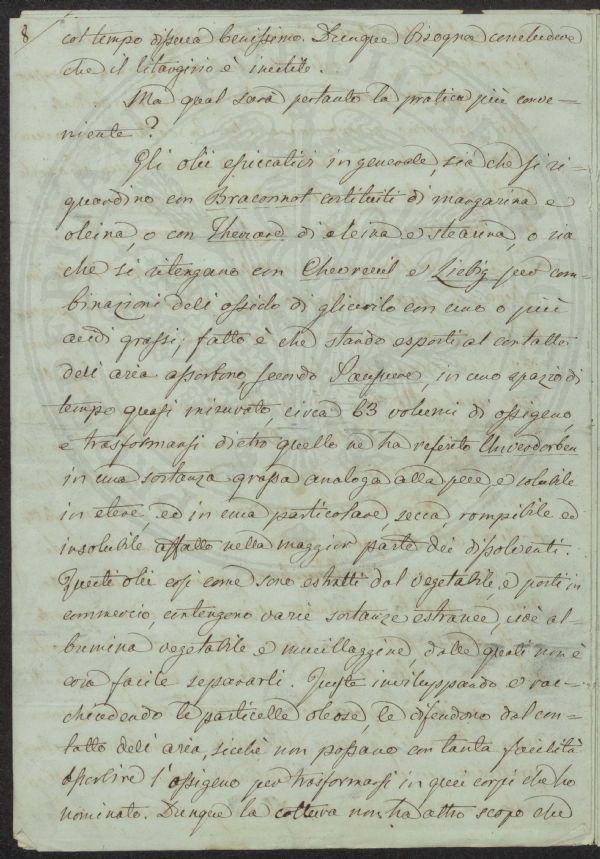 8
col tempo dissecca benissimo. Dunque bisogna concludere
che il litargirio è inutile.
Ma qual sarà pertanto la pratica più conve-
niente?
Gli olii essiccativi in generale, sia che si ri-
guardino con Braconnot costituiti di margarina e
oleina, o con Thenard di oleina e stearina, o sia
che si ritengano con Chevreul e Liebig per com-
binazioni dell'ossido di glicerilo con uno o più
acidi grassi; fatto è che stando esposti al contatto
dell'aria assorbono, secondo Saussure, in uno spazio di
tempo quasi misurato, circa 63 volumi di ossigeno,
e trasformansi dietro quello ne ha referito Unverdorben
in una sostanza grassa analoga alla pece, e solubile
in etere, ed in una particolare, secca, rompibile ed
insolubile affatto nella maggior parte dei dissolventi.
Questi olii così come sono estratti dal vegetabile, e posti in
commercio contengono varie sostanze estranee, cioè al-
bumina vegetabile e mucillaggine, dalle quali non è
cosa facile separarli. Queste inviluppando e rac-
chiudendo le particelle oleose, le difendono dal con-
tatto dell'aria, sicchè non possano con tanta facilità
assorbire l'ossigeno per trasformarsi in quei corpi che ho
nominato. Dunque la cottura non ha altro scopo che